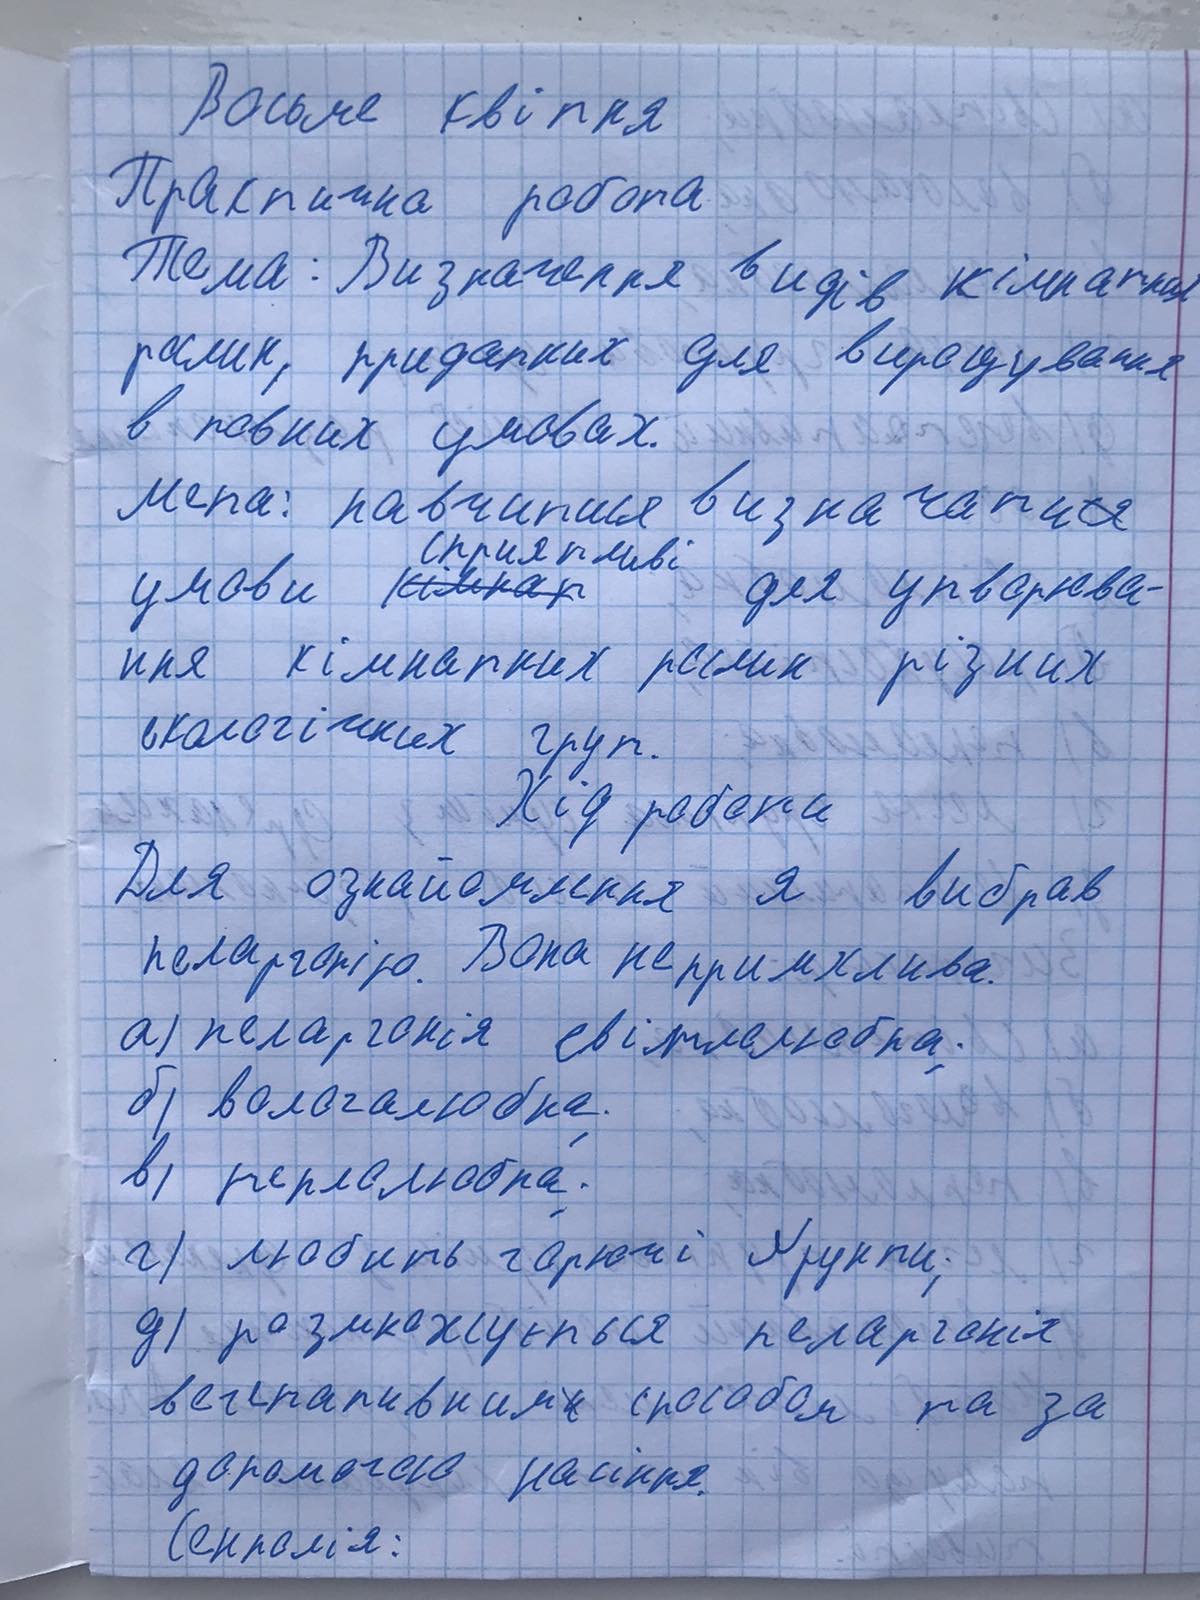 Восьме квітня
Практична робота
Тема: Визначення видів кімнатних
рослин, придатних для вирощування
в певних умовах.
Мета: навчитися визначати
умови кімнат сприятливі для утворюва-
ння кімнатних рослин різних
екологічних груп.
Хід роботи
Для ознайомлення я вибрав
пеларгонію. Вона не примхлива.
а) пеларгонія світлолюбна;
б) вологолюбна;
в) теплолюбна;
г) любить горючі ґрунти;
д) розмножується пеларгонія
вегетативними способом та за
допомогою насіння.
Сенполія: